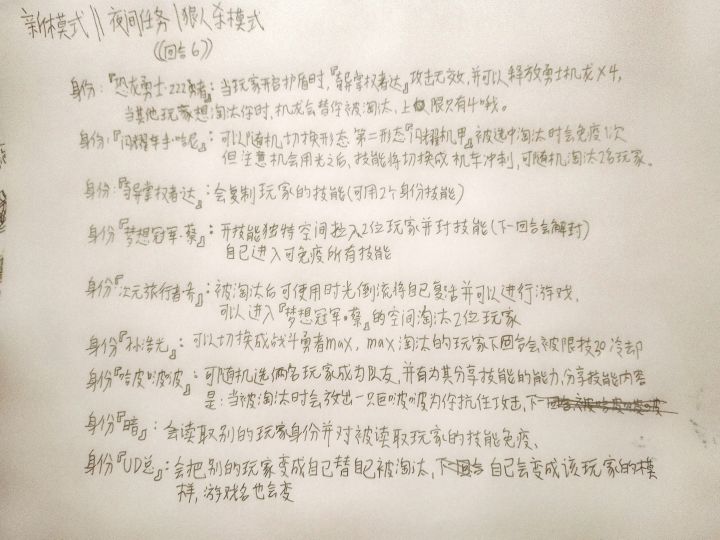 新休模式 || 夜间任务 | 狠人杀模式
((回合6))
身份:『恐龙勇士·222勇者』:当玩家开启护盾时,『异掌权者达』攻击无效,并可以释放勇士机龙×4,
当其他玩家想淘汰你时,机龙会替你被淘汰,上限只有4哦。
身份:『闪耀车手哈尼』:可以随机切换形态 第二形态『闪耀机甲』被选中淘汰时会免疫1次
但注意机会用光之后,技能将切换成机车冲刺,可随机淘汰2名玩家。
身份:『异掌权者达』:会复制玩家的技能(可用2个身份技能)
身份『梦想冠军·蔡』:开技能独特空间拉入2位玩家并封技能(下一回合会解封)
自己进入可免疫所有技能
身份『次元旅行者 』:被淘汰后可使用时光倒流将自己复活并可以进行游戏,
可以进入『梦想冠军·蔡』的空间淘汰2位玩家
身份『孙浩光』:可以切换成战斗勇者max,max淘汰的玩家下回合会被限技30冷却
身份『哈皮啵啵』:可随机选俩名玩家成为队友,并有为其分享技能的能力,分享技能内容
是:当被淘汰时会放出一只巨啵啵为你抗住攻击,下
身份『暗』:会读取别的玩家身份并对被读取玩家的技能免疫、
身份『UD总』:会把别的玩家变成自己替自己被淘汰,下一回合 自己会变成该玩家的模
样,游戏名也会变